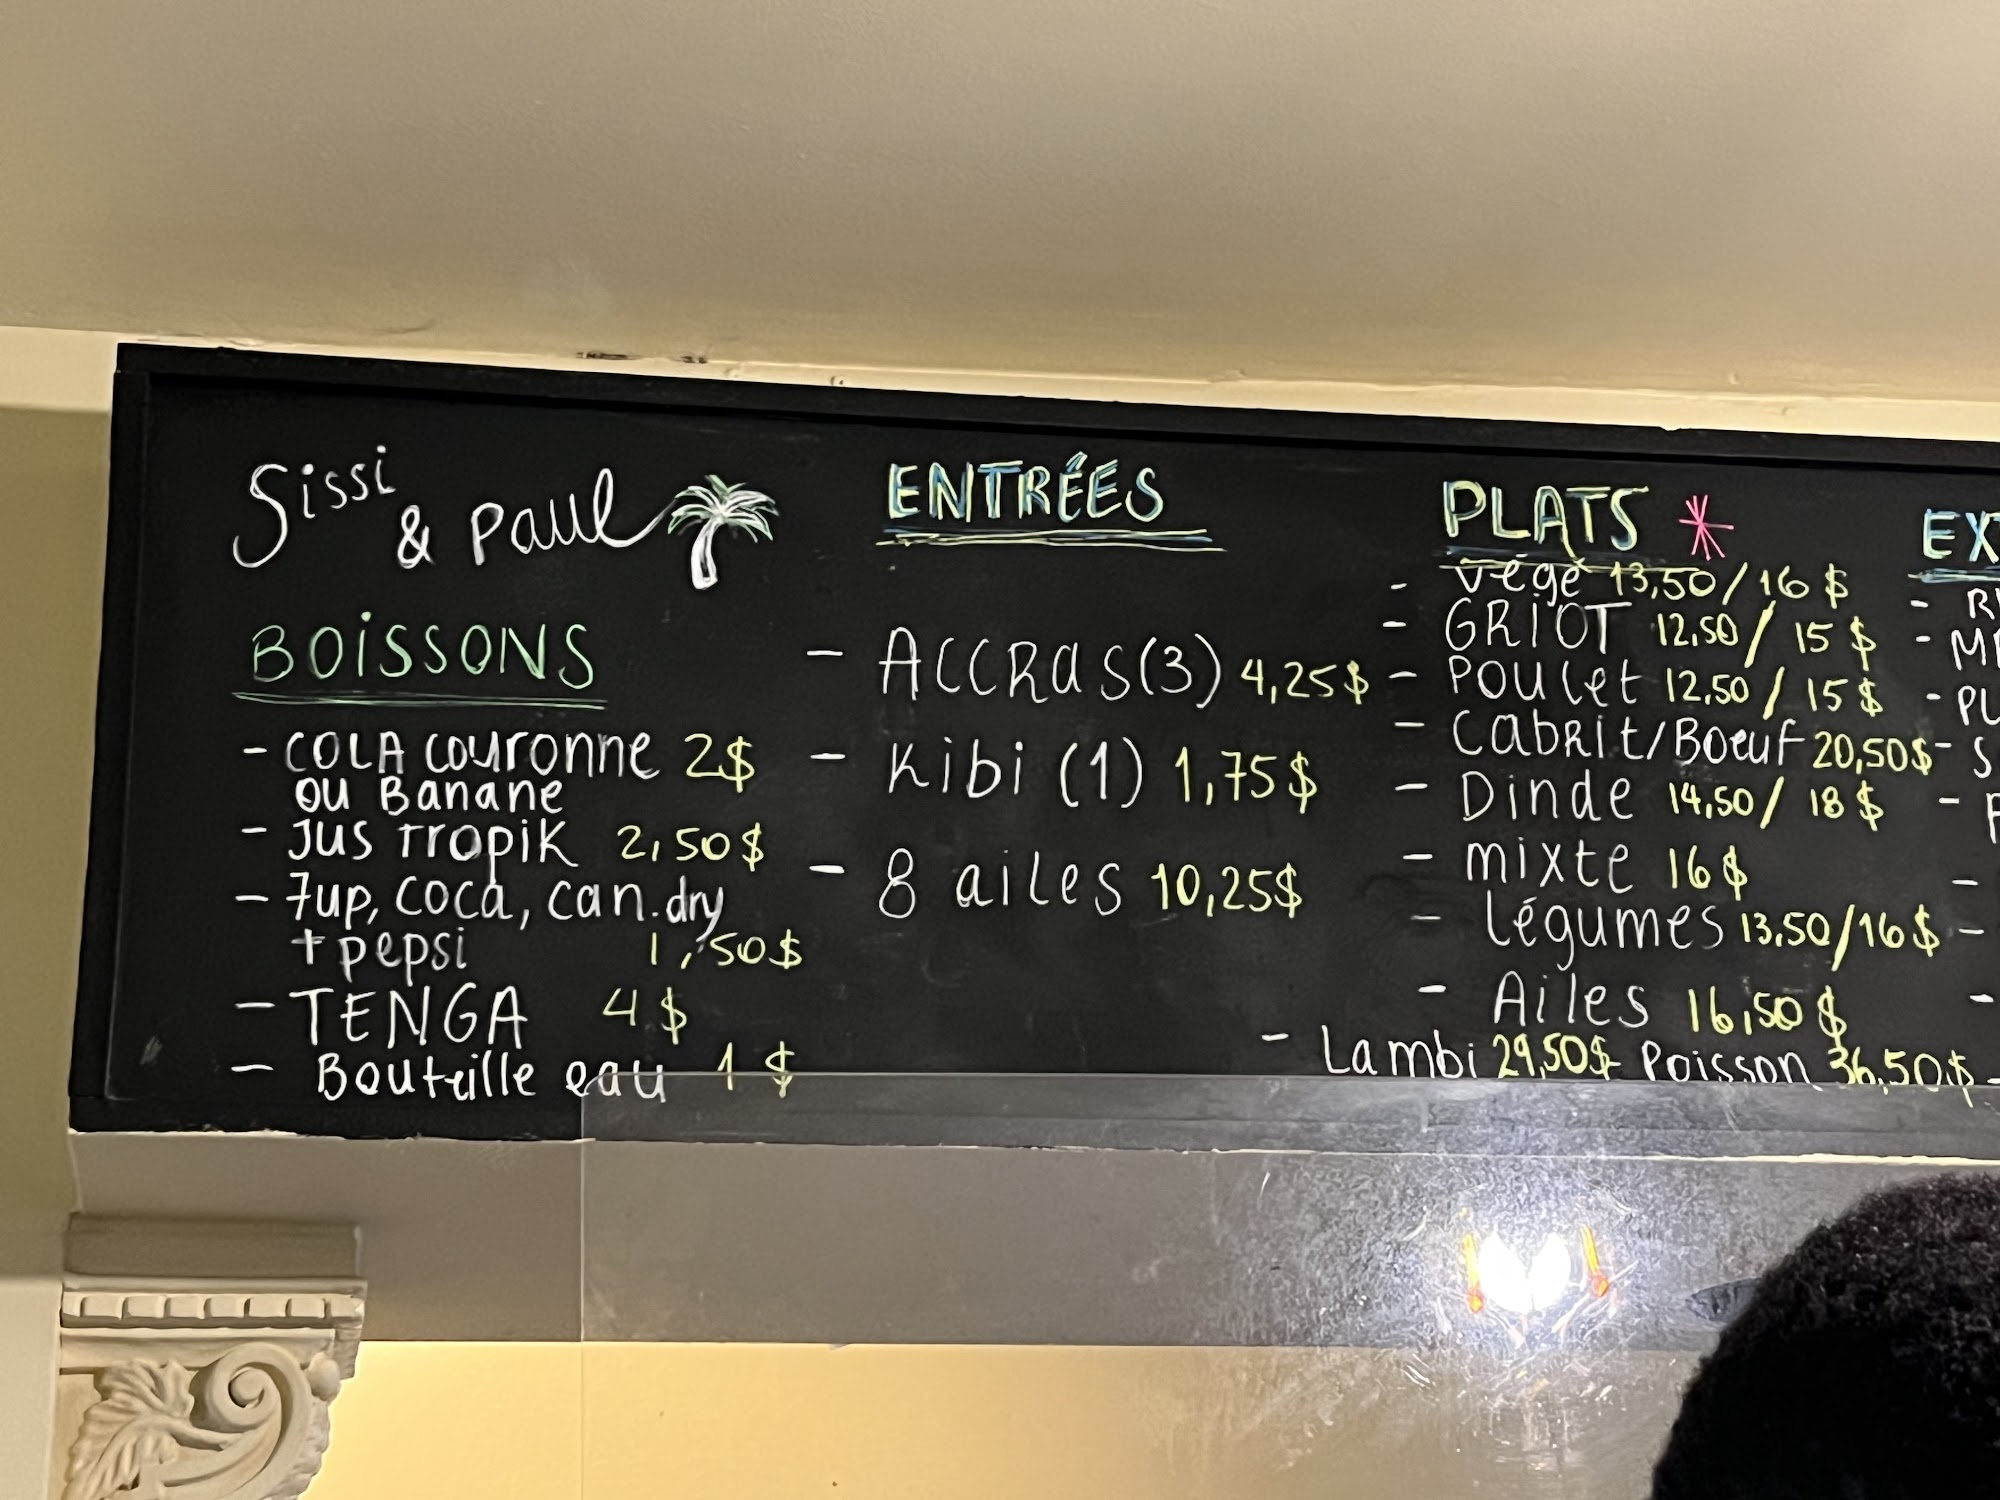 Sissi
& Paul
BOISSONS
- COLA couronne 2$
ou Banane
- Jus Tropik 2,50$
- 7up, coca, can.dry
+ pepsi 1,50$
- TENGA 4$
- Bouteille eau 1$
ENTRÉES
- ACCRAS(3) 4,25$
- Kibi (1) 1,75$
- 8 ailes 10,25$
PLATS *
- végé 13,50/16$
- GRIOT 12,50/15$
- POULET 12,50/15$
- Cabrit/Boeuf 20,50$
- Dinde 14,50/18$
- mixte 16$
- Légumes 13,50/16$
- Ailes 16,50$
- Lambi 29,50$ - Poisson 36,50$